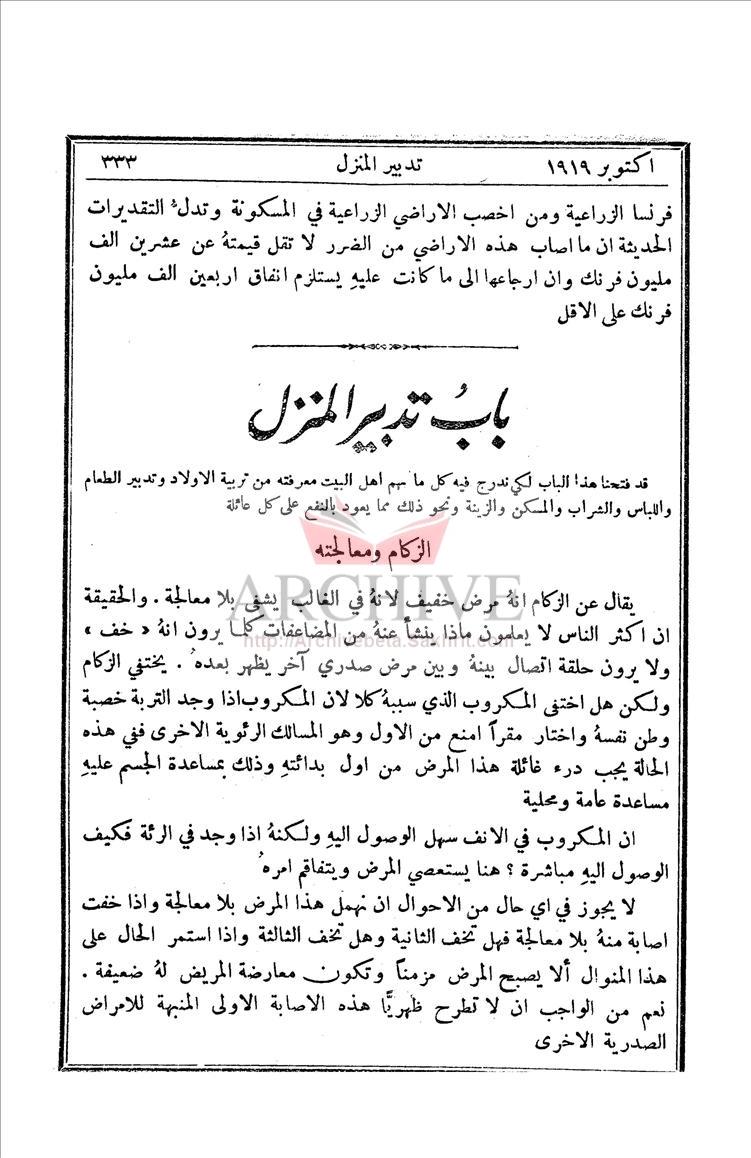 اكتوبر ١٩١٩ تدبير المنزل ٣٣٣
فرنسا الزراعية ومن اخصب الاراضي الزراعية في المسكونة وتدلُّ التقديرات
الحديثة ان ما اصاب هذه الاراضي من الضرر لا تقل قيمتهُ عن عشرين الف
مليون فرنك وان ارجاعها الى ما كانت عليهِ يستلزم انفاق اربعين الف مليون
فرنك على الاقل
بابُ تدبير المنزل
قد فتحنا هذا الباب لكي ندرج فيه كل ما يهم اهل البيت معرفته من تربية الاولاد وتدبير الطعام
واللباس والشراب والمسكن والزينة ونحو ذلك مما يعود بالنفع على كل عائلة
الزكام ومعالجته
ARCHIVE
يقال عن الزكام انهُ مرض خفيف لانهُ في الغالب يشفى بلا معالجة . والحقيقة
ان اكثر الناس لا يعلمون ماذا ينشأ عنهُ من المضاعفات كلما يرون انهُ « خف »
http://Archivebeta.Sakhrit.com
ولا يرون حلقة اتصال بينهُ وبين مرض صدري آخر يظهر بعدهُ . يختفي الزكام
ولكن هل اختفى المكروب الذي سببهُ كلا لان المكروب اذا وجد التربة خصبة
وطن نفسهُ واختار مقراً امنع من الاول وهو المسالك الرئوية الاخرى ففي هذه
الحالة يجب درء غائلة هذا المرض من اول بدائتهِ وذلك بمساعدة الجسم عليهِ
مساعدة عامة ومحلية
ان المكروب في الانف سهل الوصول اليهِ ولكنهُ اذا وجد في الرئة فكيف
الوصول اليهِ مباشرة ؟ هنا يستعصي المرض ويتفاقم امرهُ
لا يجوز في اي حال من الاحوال ان نهمل هذا المرض بلا معالجة واذا خفت
اصابة منهُ بلا معالجة فهل تخف الثانية وهل تخف الثالثة واذا استمر الحال على
هذا المنوال ألا يصبح المرض مزمناً وتكون معارضة المريض لهُ ضعيفة .
نعم من الواجب ان لا تطرح ظهريًّا هذه الاصابة الاولى المنبهة للامراض
الصدرية الاخرى